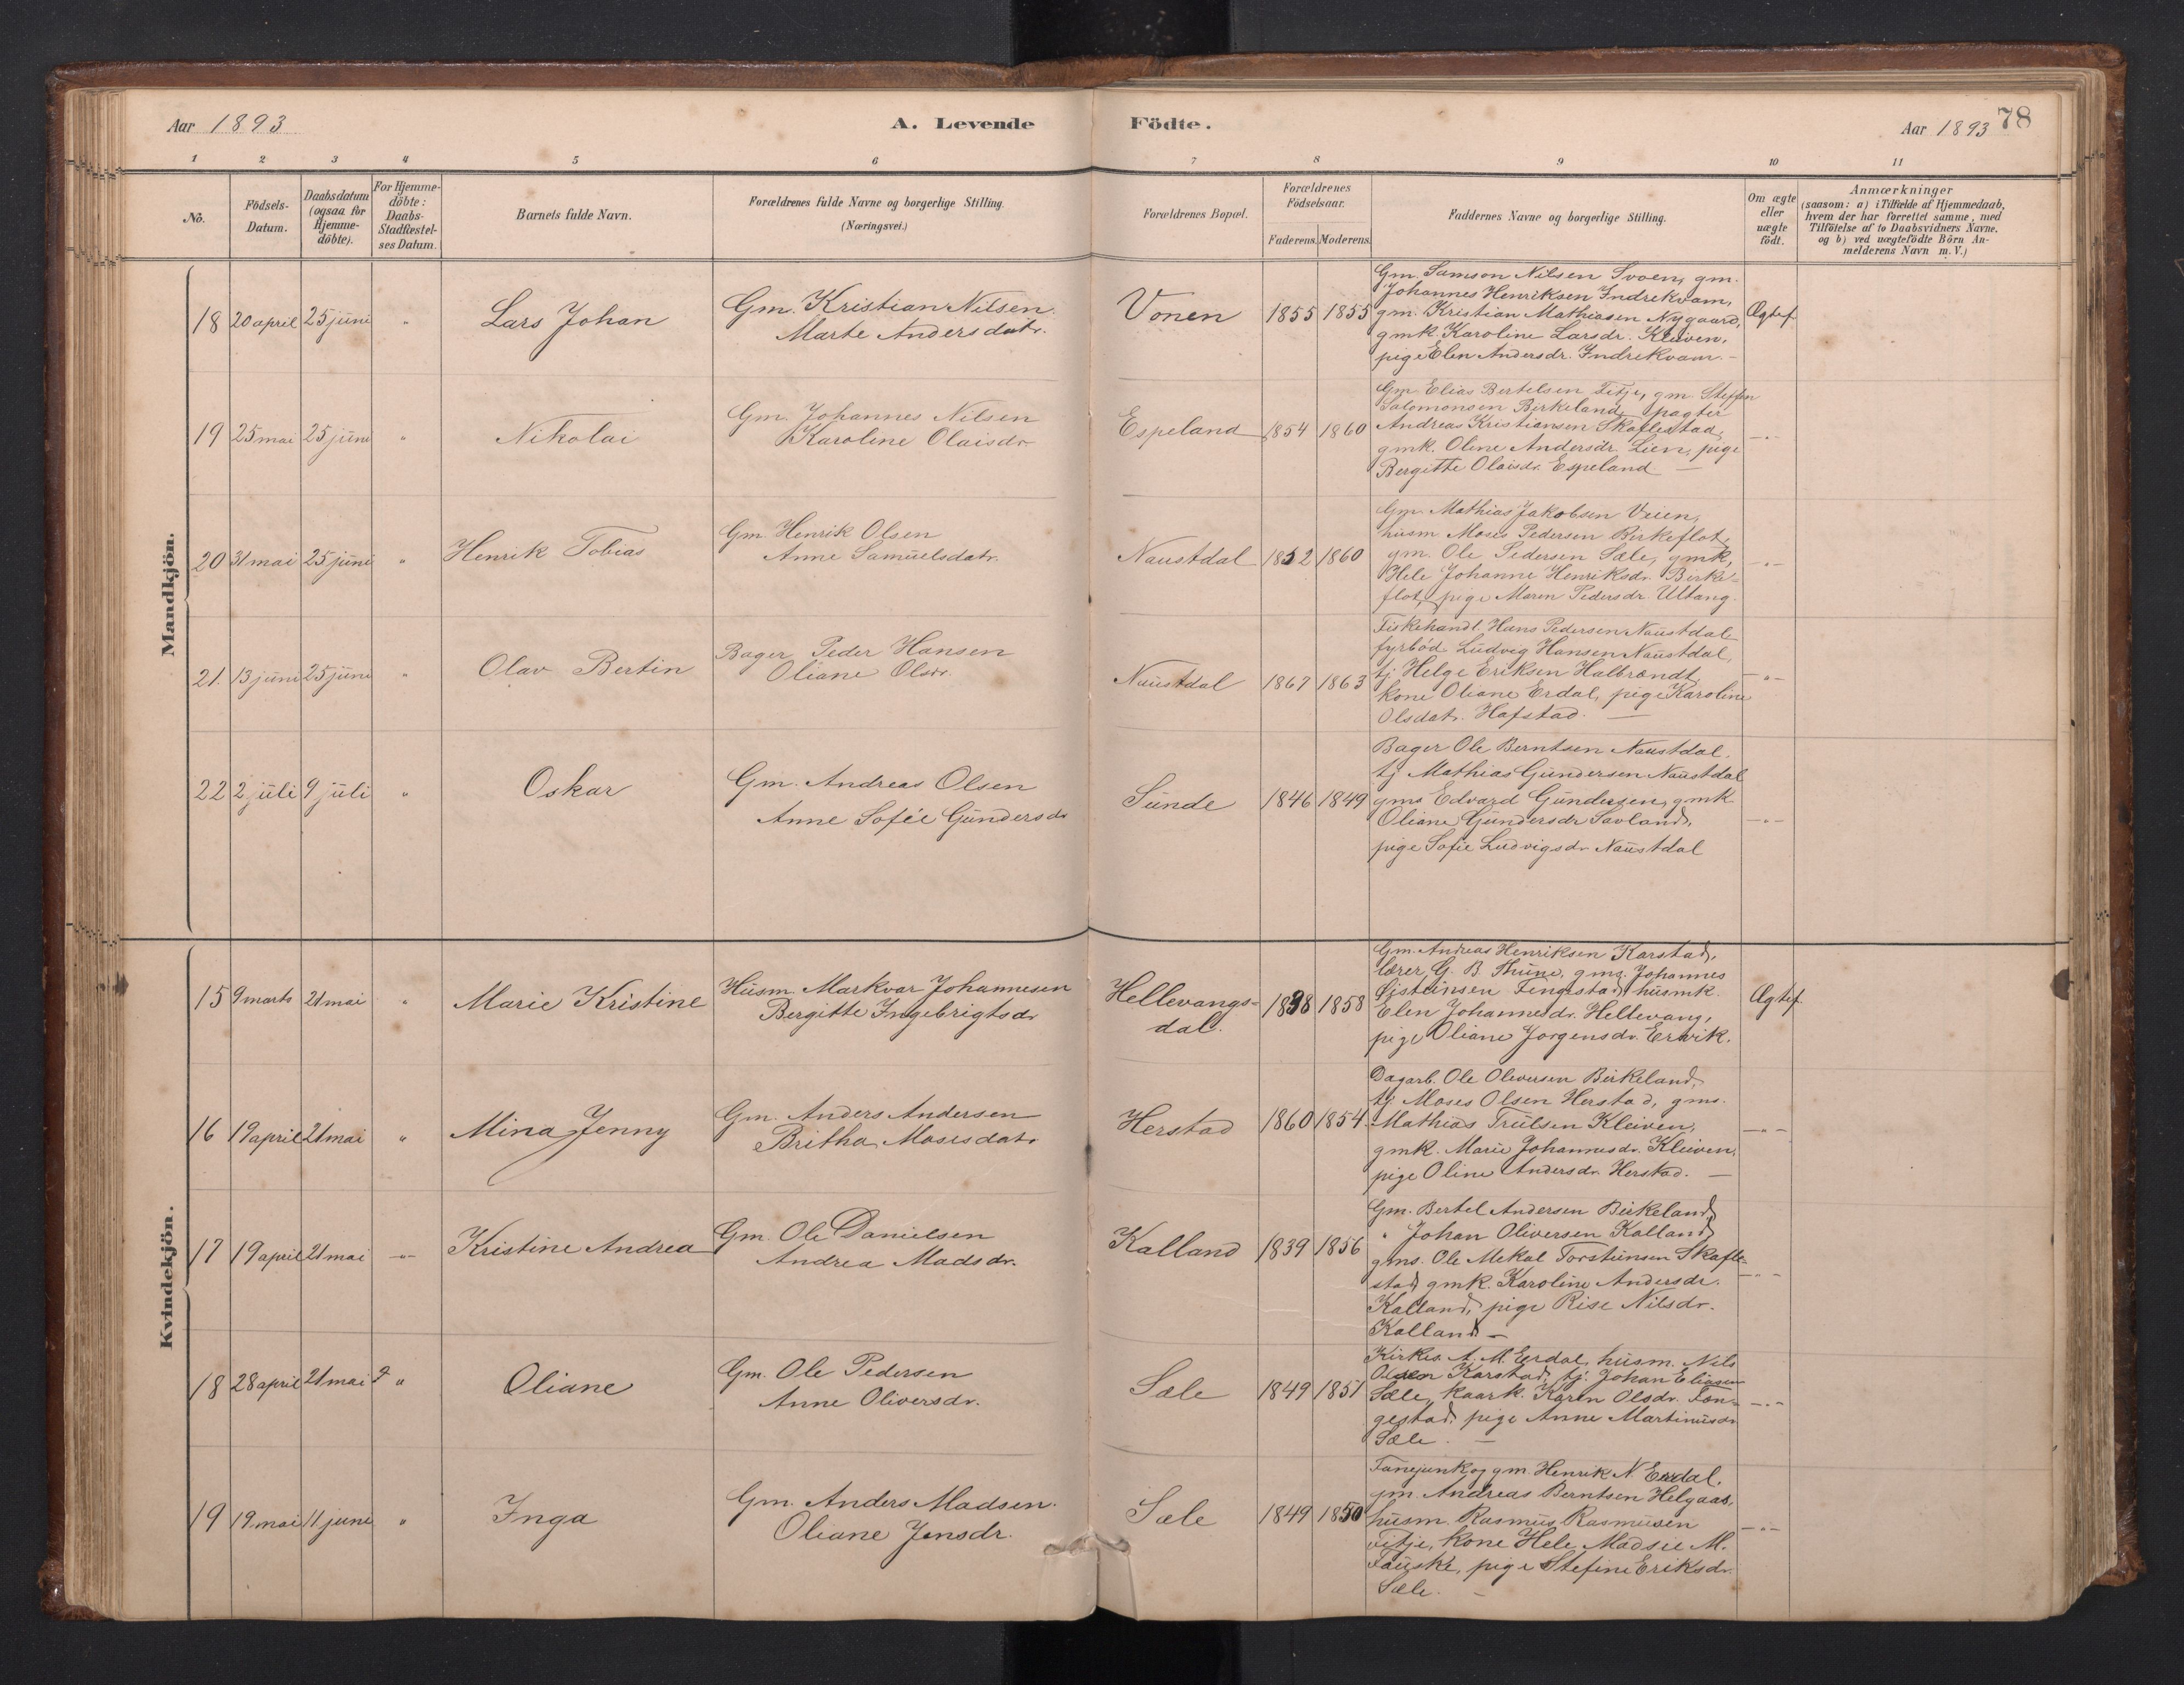 Aar 1893
A. Levende Födte.
Aar 1893 78
1 2 3 4 5 6 7 8 9 10 11
No.
Födsels-Datum.
Daabsdatum (ogsaa for Hjemme-döbte).
For Hjemme-döbte: Daabs-Stadfæstel-ses Datum.
Barnets fulde Navn.
Forældrenes fulde Navne og borgerlige Stilling.
(Næringsvei.)
Forældrenes Bopæl.
Forældrenes Födselsaar.
Faderens. Moderens.
Faddernes Navne og borgerlige Stilling.
Om ægte eller uægte födt.
Anmærkninger
(saasom: a) i Tilfælde af Hjemmedaab,
hvem der har forrettet samme, med
Tilföielse af to Daabsvidners Navne.
og b) ved uægtefödte Börn An-
melderens Navn m. V.)
Mandkjön.
18 20 april 25 juni " Lars Johan
Gm. Kristian Nilsen.
Marte Andersdatr.
Vonen 1855 1855
Gm. Samson Nilsen Svoen, gm.
Johannes Henriksen Indrekvam,
gm. Kristian Mathiasen Nygaard,
gmk. Karoline Larsdr. Kleiven,
pige Elen Andersdr. Indrekvam. -
Ægtef.
19 25 mai 25 juni " Nikolai
Gm. Johannes Nilsen
Karoline Olaisdr.
Espeland 1854 1860
Gm. Elias Bertelsen Fitje, gm. Steffen
Salomonsen Birkeland, pagter
Andreas Kristiansen Skaflestad,
gmk. Oline Andersdr. Lien, pige
Bergitte Olaisdr. Espeland —
—"—
20 31 mai 25 juni " Henrik Tobias
Gm. Henrik Olsen
Anne Samuelsdatr.
Naustdal 1852 1860
Gm. Mathias Jakobsen Veien,
husm Moses Pedersen Birkeflot,
gm. Ole Pedersen Sæle, gmk,
Hele Johanne Henriksdr. Birke-
flot, pige Maren Pedersdr. Ultang.
—"—
21. 13 juni 25 juni " Olav Bertin
Bager Peder Hansen
Oliane Olsdr.
Naustdal 1867 1863
Fiskehandl. Hans Pedersen Naustdal
fyrbød. Ludvig Hansen Naustdal,
tj. Helge Eriksen Halbrendt,
kone Oliane Erdal, pige Karoline
Olsdatr. Hafstad. —
—"—
22 2 juli 9 juli " Oskar
Gm. Andreas Olsen
Anne Sofie Gundersdr
Sunde 1846 1849
Bager Ole Berntsen Naustdal.
tj Mathias Gundersen Naustdal
gms Edvard Gundersen, gmk
Oliane Gundersdr Savland,
pige Sofie Ludvigsdr Naustdal
—"—
Kvindekjön.
15 9 marts 21 mai " Marie Kristine
Husm. Markvar Johannesen
Bergitte Ingebrigtsdr
Hellevangs-
dal. 1838 1858
Gm. Andreas Henriksen Karstad,
lærer G. B. Thune, gms. Johannes
Øisteinsen Fengestad, husmk.
Elen Johannesdr. Hellevang,
pige Oliane Jorgensdr. Ervik.
Ægtef
16 19 april 21 mai " Mina Jenny
Gm. Anders Andersen
Britha Mosesdatr
Herstad 1860 1854
Dagarb. Ole Oliversen Birkeland,
tj. Moses Olsen Herstad, gms.
Mathias Trulsen Kleiven,
gmk. Marie Johannesdr. Kleiven,
pige Oline Andersdr. Herstad. —
—"—
17 19 april 21 mai —"— Kristine Andrea
Gm. Ole Danielsen
Andrea Madsdr.
Kalland 1839 1856
Gm. Bertel Andersen Birkeland,
" Johan Oliversen Kalland,
gms. Ole Mekal Torsteinsen Skafle-
stad, gmk. Karoline Andersdr.
Kalland, pige Rise Nilsdr.
Kalland —
—"—
18 28 april 21 mai " Oliane
Gm. Ole Pedersen
Anne Oliversdr.
Sæle 1849 1851
Kirkes. A. M. Erdal, husm. Nils
Olsen Karstad, tj. Johan Eliasen
Sæle, kaark. Karen Olsdr. Fen-
gestad, pige Anne Martinusdr
Sæle. —
—"—
19 19 mai 11 juni " Inga
Gm. Anders Madsen.
Oliane Jensdr.
Sæle 1849 1850
Fanejunk og gm. Henrik N. Erdal.
gm. Andreas Berntsen Helgaas,
husm. Rasmus Rasmusen
Vitje, kone Hele Madsie M.
Fauske, pige Stefine Eriksdr.
Sæle. —
—"—